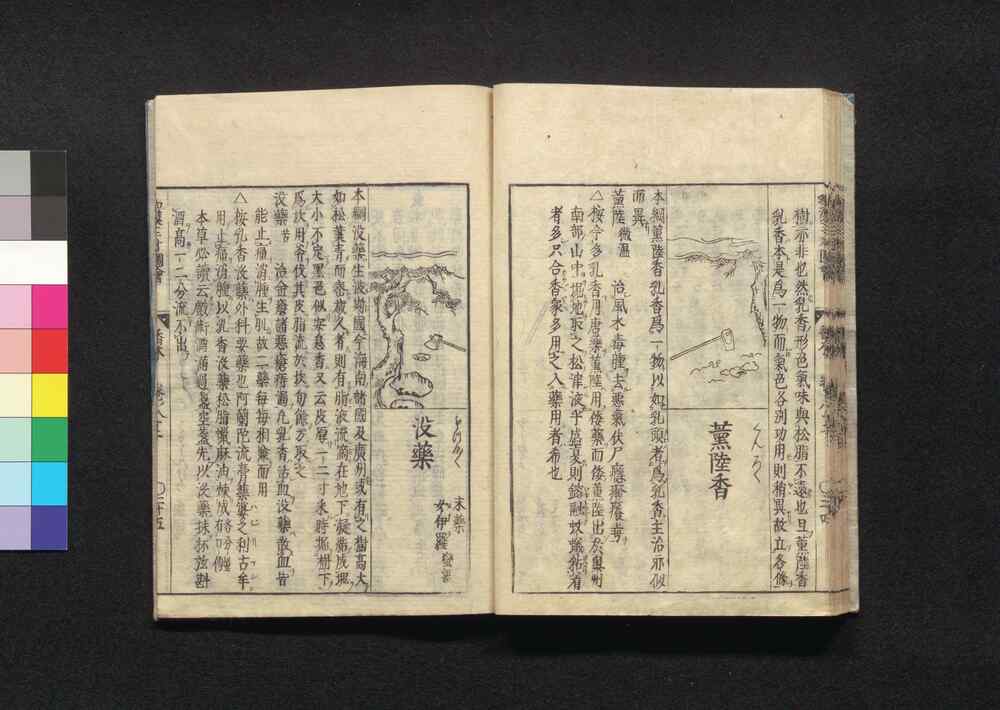 樹亦非也然乳香形色氣味與松脂不遠也且薰陸香
乳香本是爲一物而氣色各別功用則稍異故立各條
くんろく
薰陸香
本綱薰陸香乳香爲一物以如乳頭者爲乳香主治亦似
而異
薰陸微溫 治風水毒腫去惡氣伏尸
△按今多乳香用唐藥薰陸用倭藥而倭薰陸出於奥州
南部山中掘地取之松津液乎盛夏則
者多只合香家多用之入藥用者希也
もつやく
没藥
末藥
本綱没藥生波斯國今海南諸國及廣州或有之樹高大
如松葉青而密歲久者則有脂液流滴在地下凝結成塊
大小不定黑色似安息香又云皮厚一二寸采時掘樹下
爲坎用斧伐其皮脂流於坎旬餘方取之
没藥苦 治金瘡諸惡瘡痔漏凡乳香活血没藥散血皆
能止痛消腫生肌故二藥每每相兼而用
△按乳香没藥外科要藥也阿蘭陀流膏藥
用止痛消腫以乳香没藥松脂蠟麻油煉成
本草必讀云
酒高一二分流不出